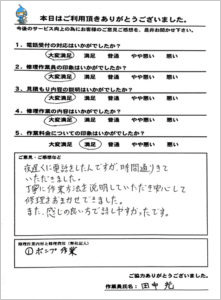 本日はご利用頂きありがとうございました。
今後のサービス向上の為にお客様のご意見ご感想を、是非お聞かせ下さい。
1.電話受付の対応はいかがでしたか?
大変満足 満足 普通 やや悪い 悪い
2.修理作業員の印象はいかがでしたか?
大変満足 満足 普通 やや悪い 悪い
3.見積もり内容の説明はいかがでしたか?
大変満足 満足 普通 やや悪い 悪い
4.修理作業の内容はいかがでしたか?
大変満足 満足 普通 やや悪い 悪い
5.作業料金についての印象はいかがでしたか?
大変満足 満足 普通 やや悪い 悪い
ご意見・ご感想など
夜遅くに電話をしたんですが、時間通りきて
いただきました。
丁寧に作業方法を説明していただき安心して
修理をおまかせできました。
また、感じの良い方で話しやすかったです。
修理作業内容と修理費用(弊社記入)
①ポンプ作業
ご協力ありがとうございました。
作業員氏名: 田中